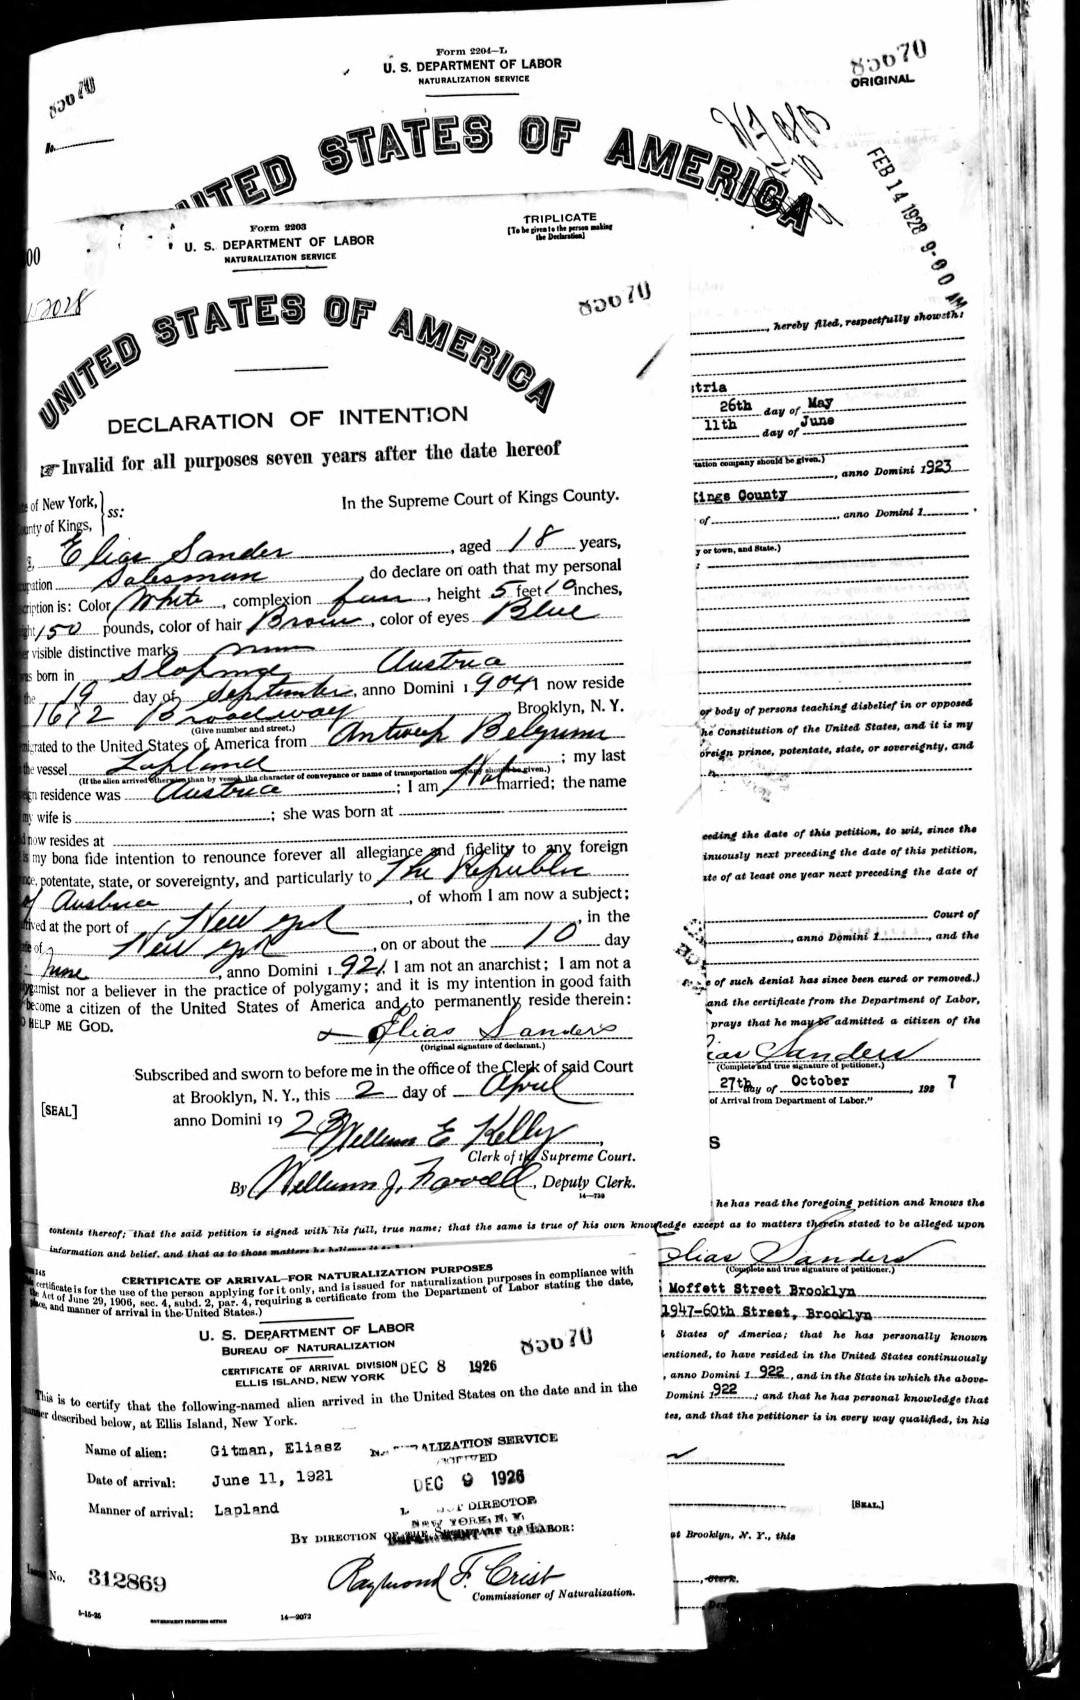 Form 2204—L
U. S. DEPARTMENT OF LABOR
NATURALIZATION SERVICE
85670
No.
85670
ORIGINAL
UNITED STATES OF AMERICA
FEB 14 1928 9-00 AM
, hereby filed, respectfully showeth:
stria
26th day of May
11th day of June
tation company should be given.)
, anno Domini 1923
Kings County
of , anno Domini 1
y or town, and State.)
or body of persons teaching disbelief in or opposed
he Constitution of the United States, and it is my
oreign prince, potentate, state, or sovereignty, and
eeding the date of this petition, to wit, since the
inuously next preceding the date of this petition,
ate of at least one year next preceding the date of
Court of
, anno Domini 1 , and the
e of such denial has since been cured or removed.)
and the certificate from the Department of Labor,
prays that he may be admitted a citizen of the
ias Sanders
(Complete and true signature of petitioner.)
27th day of October , 1927
of Arrival from Department of Labor."
S
he has read the foregoing petition and knows the
contents thereof; that the said petition is signed with his full, true name; that the same is true of his own knowledge except as to matters therein stated to be alleged upon
information and belief, and that as to those matters he believes it to b
Elias Sanders
(Complete and true signature of petitioner.)
Moffett Street Brooklyn
1947-60th Street, Brooklyn
States of America; that he has personally known
entioned, to have resided in the United States continuously
, anno Domini 1922, and in the State in which the above-
Domini 1922; and that he has personal knowledge that
tes, and that the petitioner is in every way qualified, in his
[SEAL.]
at Brooklyn, N. Y., this
, Clerk.
00
152028
Form 2203
U. S. DEPARTMENT OF LABOR
NATURALIZATION SERVICE
TRIPLICATE
[To be given to the person making
the Declaration]
85670
UNITED STATES OF AMERICA
DECLARATION OF INTENTION
☞Invalid for all purposes seven years after the date hereof
e of New York,
unty of Kings, ss:
In the Supreme Court of Kings County.
I, Elias Sander , aged 18 years,
upation Salesman , do declare on oath that my personal
cription is: Color White , complexion fair , height 5 feet 10 inches,
ght 150 pounds, color of hair Brown , color of eyes Blue
er visible distinctive marks none
as born in Austria
the 19 day of September , anno Domini 1904 I now reside
1672 Broadway , Brooklyn, N. Y.
(Give number and street.)
migrated to the United States of America from Antwerp Belgium
the vessel Lapland ; my last
(If the alien arrived otherwise than by vessel, the character of conveyance or name of transportation company should be given.)
eign residence was Austria ; I am Not married; the name
my wife is ; she was born at
d now resides at
is my bona fide intention to renounce forever all allegiance and fidelity to any foreign
nce, potentate, state, or sovereignty, and particularly to The Republic
of Austria , of whom I am now a subject;
rrived at the port of New York , in the
ate of New York , on or about the 10 day
June , anno Domini 1921. I am not an anarchist; I am not a
lygamist nor a believer in the practice of polygamy; and it is my intention in good faith
become a citizen of the United States of America and to permanently reside therein:
O HELP ME GOD.
x Elias Sanders
(Original signature of declarant.)
Subscribed and sworn to before me in the office of the Clerk of said Court
at Brooklyn, N. Y., this 2 day of April
[SEAL]
anno Domini 1923
William E Kelly ,
Clerk of the Supreme Court.
By William J. , Deputy Clerk.
14—739
CERTIFICATE OF ARRIVAL—FOR NATURALIZATION PURPOSES
certificate is for the use of the person applying for it only, and is issued for naturalization purposes in compliance with
the Act of June 29, 1906, sec. 4, subd. 2, par. 4, requiring a certificate from the Department of Labor stating the date,
place, and manner of arrival in the United States.)
U. S. DEPARTMENT OF LABOR
BUREAU OF NATURALIZATION
85670
CERTIFICATE OF ARRIVAL DIVISION DEC 8 1926
ELLIS ISLAND, NEW YORK
This is to certify that the following-named alien arrived in the United States on the date and in the
manner described below, at Ellis Island, New York.
Name of alien: Gitman, Eliasz
NATURALIZATION SERVICE
Date of arrival: June 11, 1921
DEC 9 1926
Manner of arrival: Lapland
DIRECTOR
NEW YORK, N. Y.
BY DIRECTION OF THE SECRETARY OF LABOR:
No. 312869
Raymond F. Crist
Commissioner of Naturalization.
5-15-25
GOVERNMENT PRINTING OFFICE
14—2072